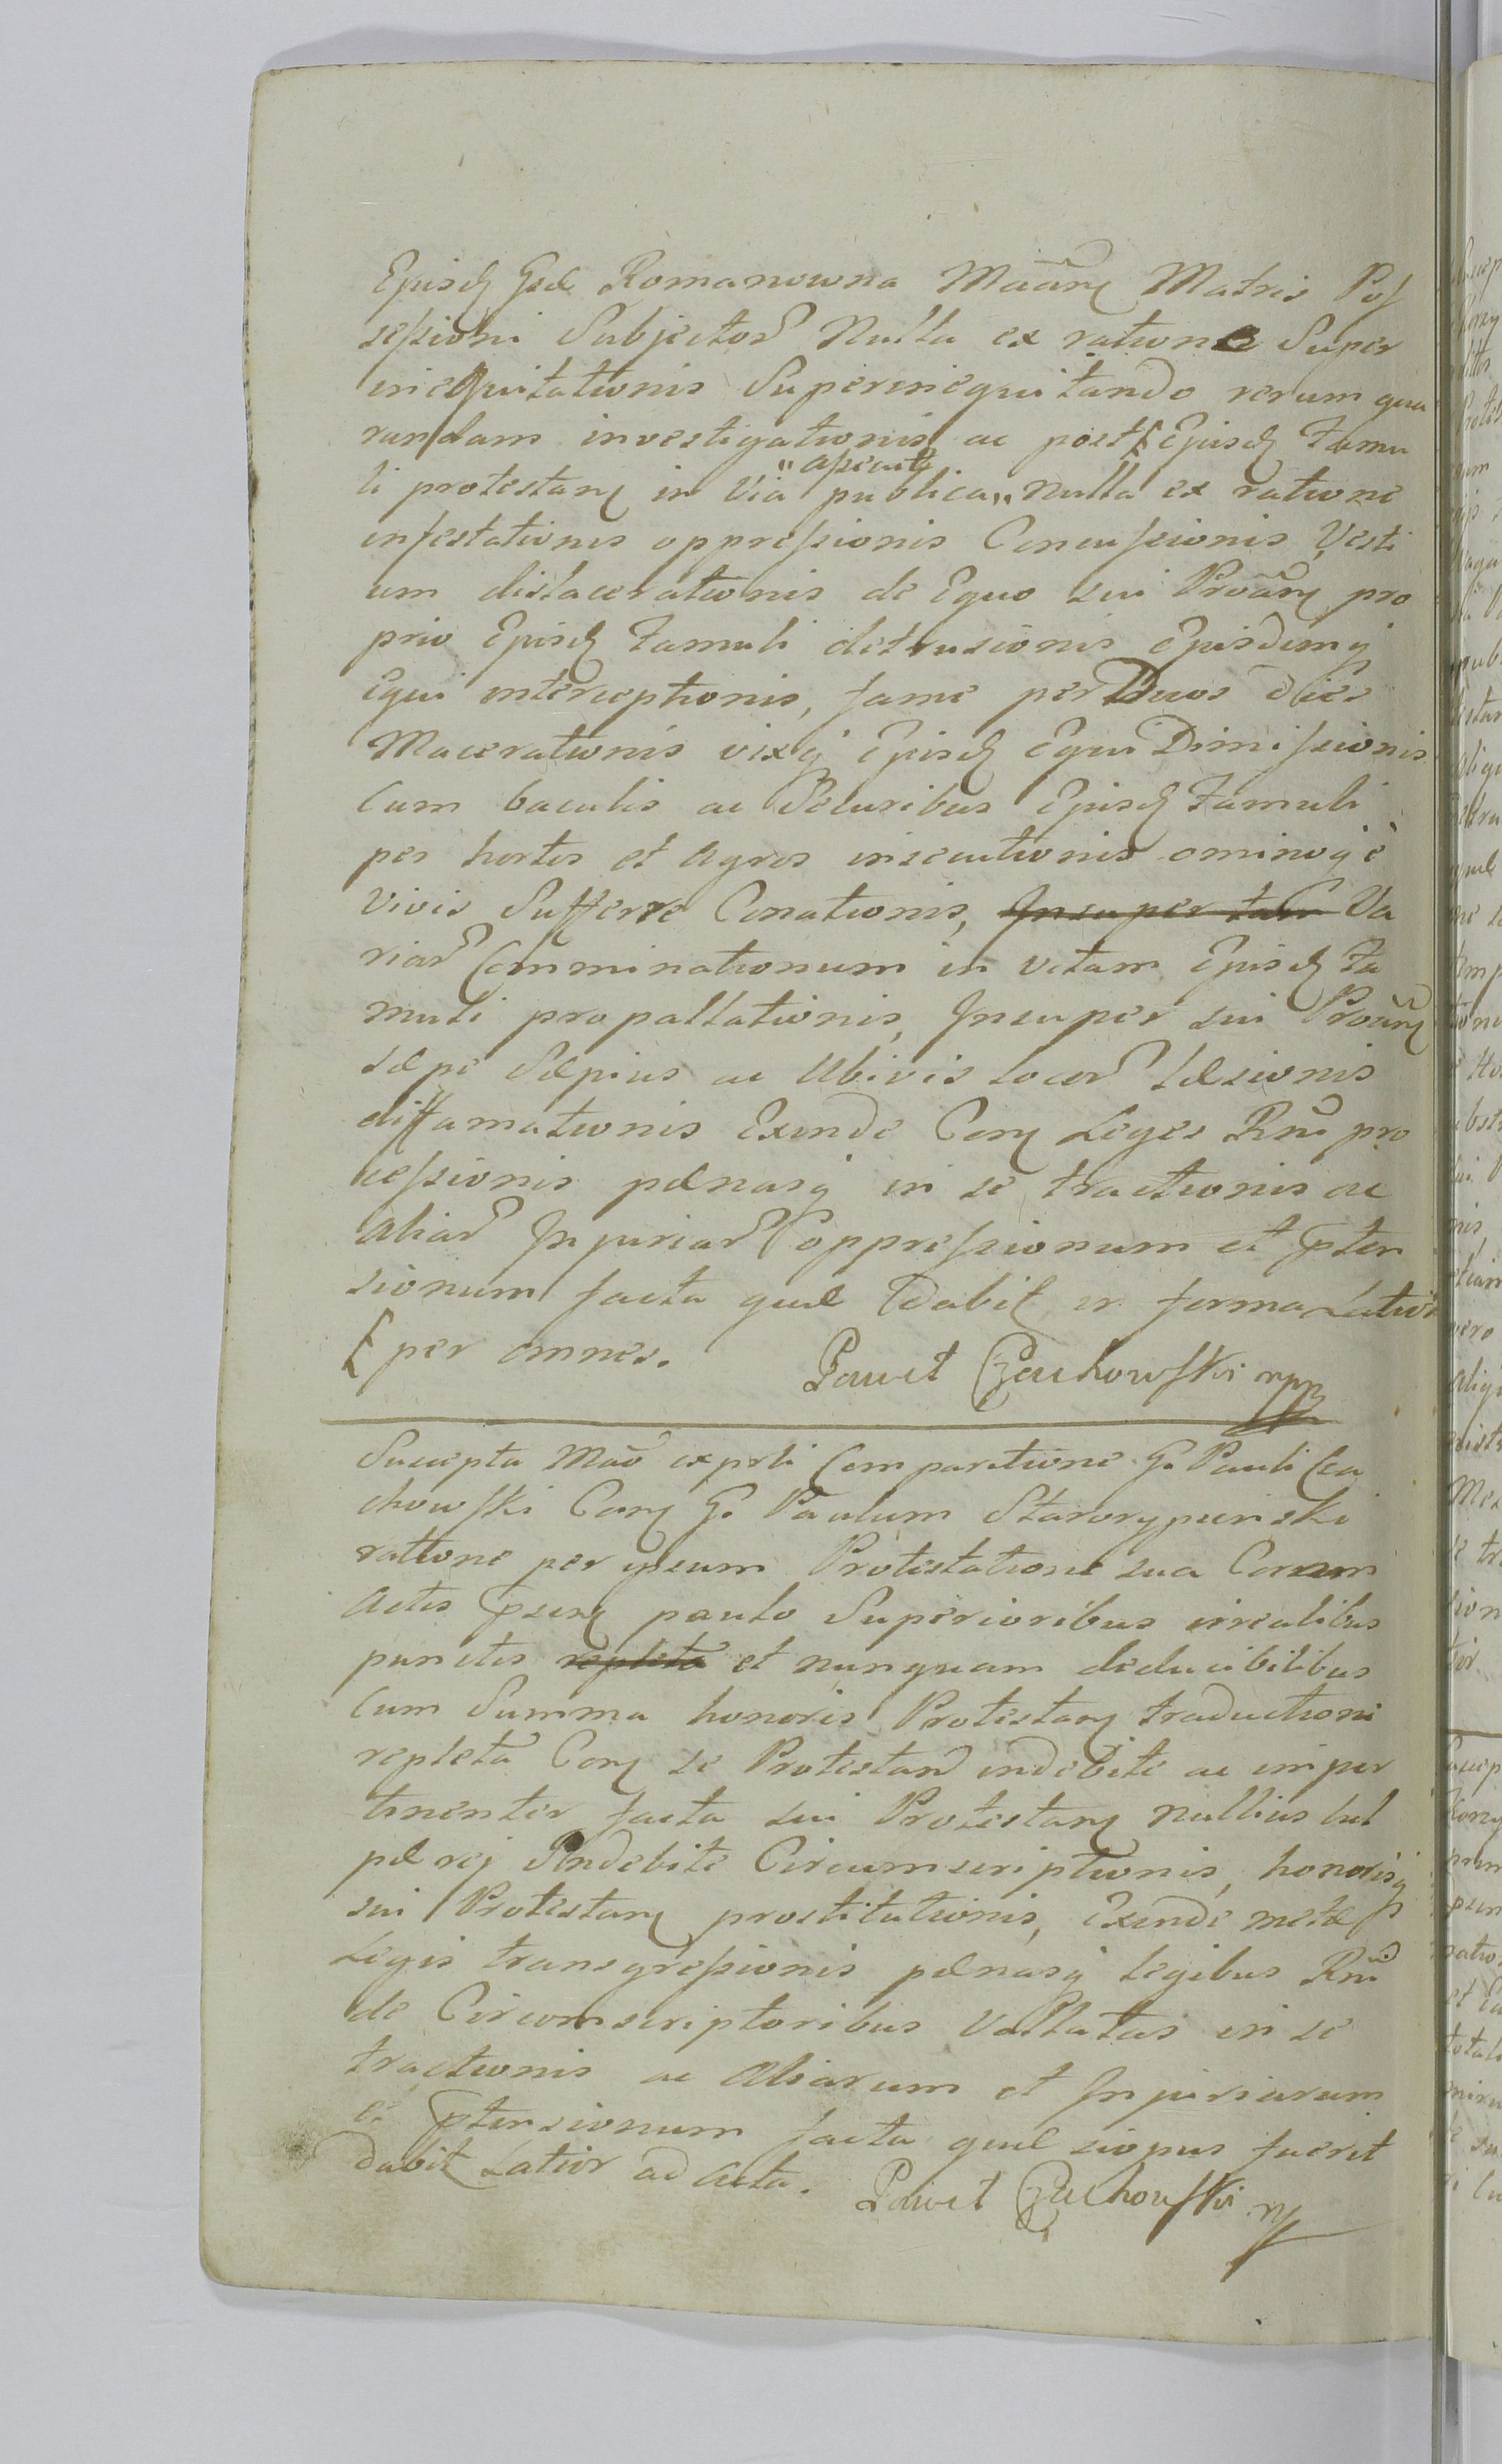 Ejusd Gsd Romanowna Matris Pos
sessioni Subjector Nulla ex ratione Super
inequitationis Superinequitando rerum qua
rundam investigationis ac post Ejusd Famu
li protestan in Via publica nulla ex ratione
infestationis oppressionis Concussionis Vesti
um dislacerationis de Equo sui pro
prio Ejusd Famuli detrusionis Ejusdemq
Equi interceptionis, fame per Duos dies
Macerationis vixq Ejusd Equi Dimissionis
Cum baculis ac Securibus Ejusd Famuli
per hortos et Agros insecutionis ominoq è
Vivis Sufferre Conationis, Insuper tam Va
riar Comminationum in vitam Ejusd Fa
muli propallationis, Insuper sui
sæpe Sæpius ac Ubivis locor Læsionis
diffamationis Exinde Con Leges Rni pro
cessionis pænasq in se tractionis ac
aliar Injuriar oppressionum et pten
sionum facta quæ dabit in forma Latior
per omnes. Paweł Czachowski mpp
Suscepta Mao ex psti Comparitione G. Pauli Cza
chowski Con G. Paulum Starorypinski
ratione per ipsum Protestatione sua Coram
Actis psen paulo Superioribus irrealibus
punctis repleta et nunquam deducibilibus
Cum Summa honoris Protestan traductioni
repleta Con se Protestan indebite ac imper
tinenter facta sui Protestan nullius cul
pæ rej Indebite Circumscriptionis, honorisq
sui Protestan prostitutionis, Exinde metæ
Legis transgressionis pænasq legibus Rni
de Circumscriptoribus Vallatas in se
tractionis ac Aliarum et Injuriarum
et ptensionum facta quæ si opus fuerit
dabit Latior ad Acta. Paweł Czachowski